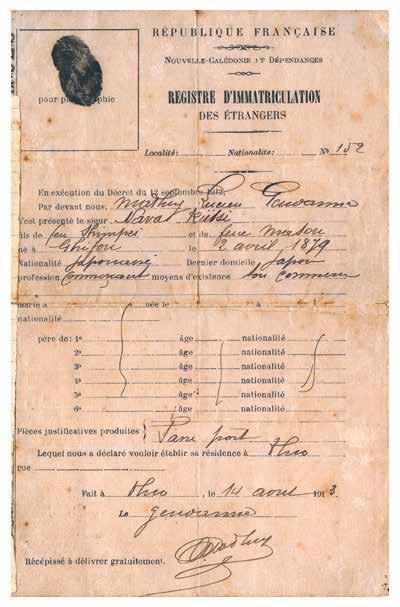 RÉPUBLIQUE FRANÇAISE
NOUVELLE-CALÉDONIE ET DÉPENDANCES
REGISTRE D'IMMATRICULATION
DES ÉTRANGERS
pour photographie
Localité: Nationalité: N° 152
En exécution du Décret du 12 septembre 1912,
Par devant nous, Mathuy Lucien Gendarme
s'est présenté le sieur
fils de feu et de feue
né à le 2 avril 1879
Nationalité japonaise Dernier domicile Japon
profession Commerçant moyens d'existence son commerce
marié à née le à
nationalité
père de: 1° âge nationalité
2° âge nationalité
3° âge nationalité
4° âge nationalité
5° âge nationalité
6° âge nationalité
Pièces justificatives produites Passe port
Lequel nous a déclaré vouloir établir sa résidence à Thio
rue
Fait à Thio, le 14 avril 1913
Le gendarme
Mathuy
Récépissé à délivrer gratuitement.